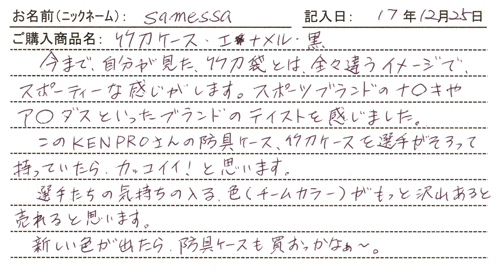 お名前(ニックネーム): samessa 記入日: 17年12月25日
ご購入商品名: 竹刀ケース・エナメル・黒
今まで、自分が見た、竹刀袋とは、全々違うイメージで、
スポーティーな感じがします。スポーツブランドのナ〇キや
ア〇ダスといったブランドのテイストを感じました。
このKENPROさんの防具ケース、竹刀ケースを選手がそろって
持っていたら、カッコイイ!と思います。
選手たちの気持ちの入る、色(チームカラー)がもっと沢山あると
売れると思います。
新しい色が出たら、防具ケースも買おっかなぁ〜。